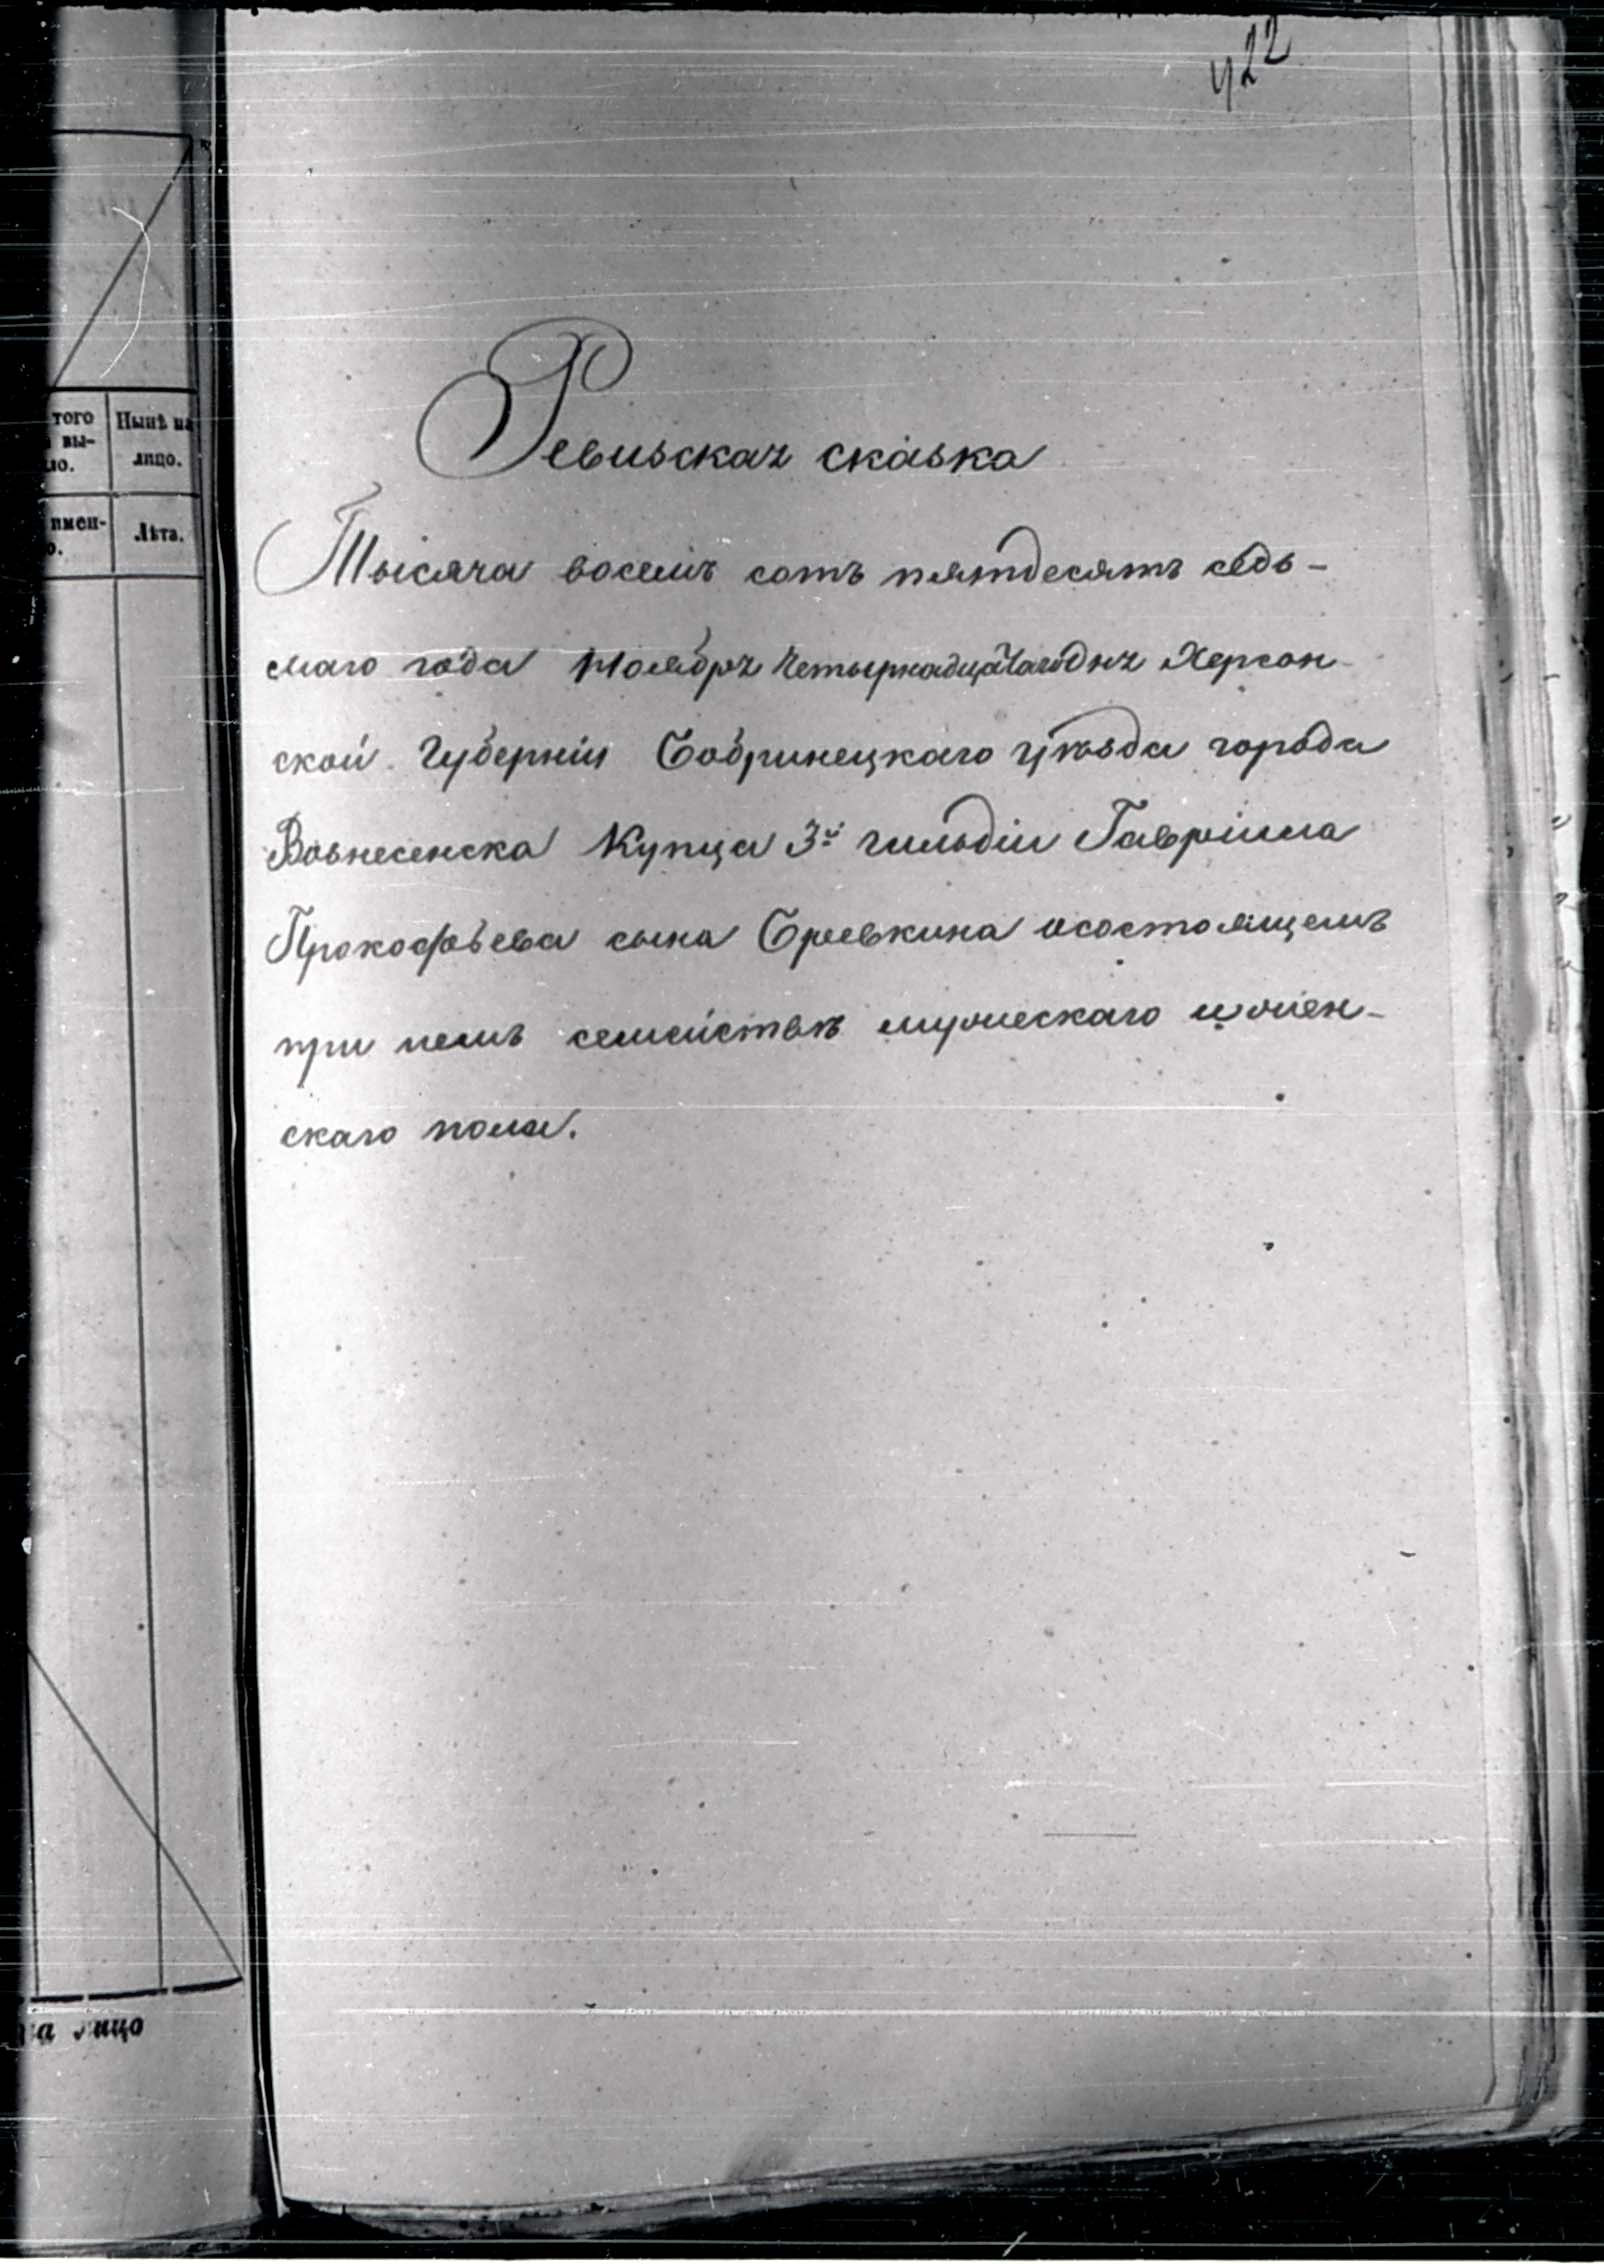 422
того
вы-
ло.
Нынѣ на
лицо.
имен-
о.
Лѣта.
Ревизская сказка
Тысяча восемъ сотъ пятдесятъ седь-
маго года Ноября Четырнадцатаго дня Херсон-
ской Губерніи Бобринецкаго уѣзда города
Вознесенска Купца 3й гильдіи Гавріила
Прокофьева сына осостоящемъ
при немъ семействѣ мужескаго и женс-
скаго пола.
на лицо